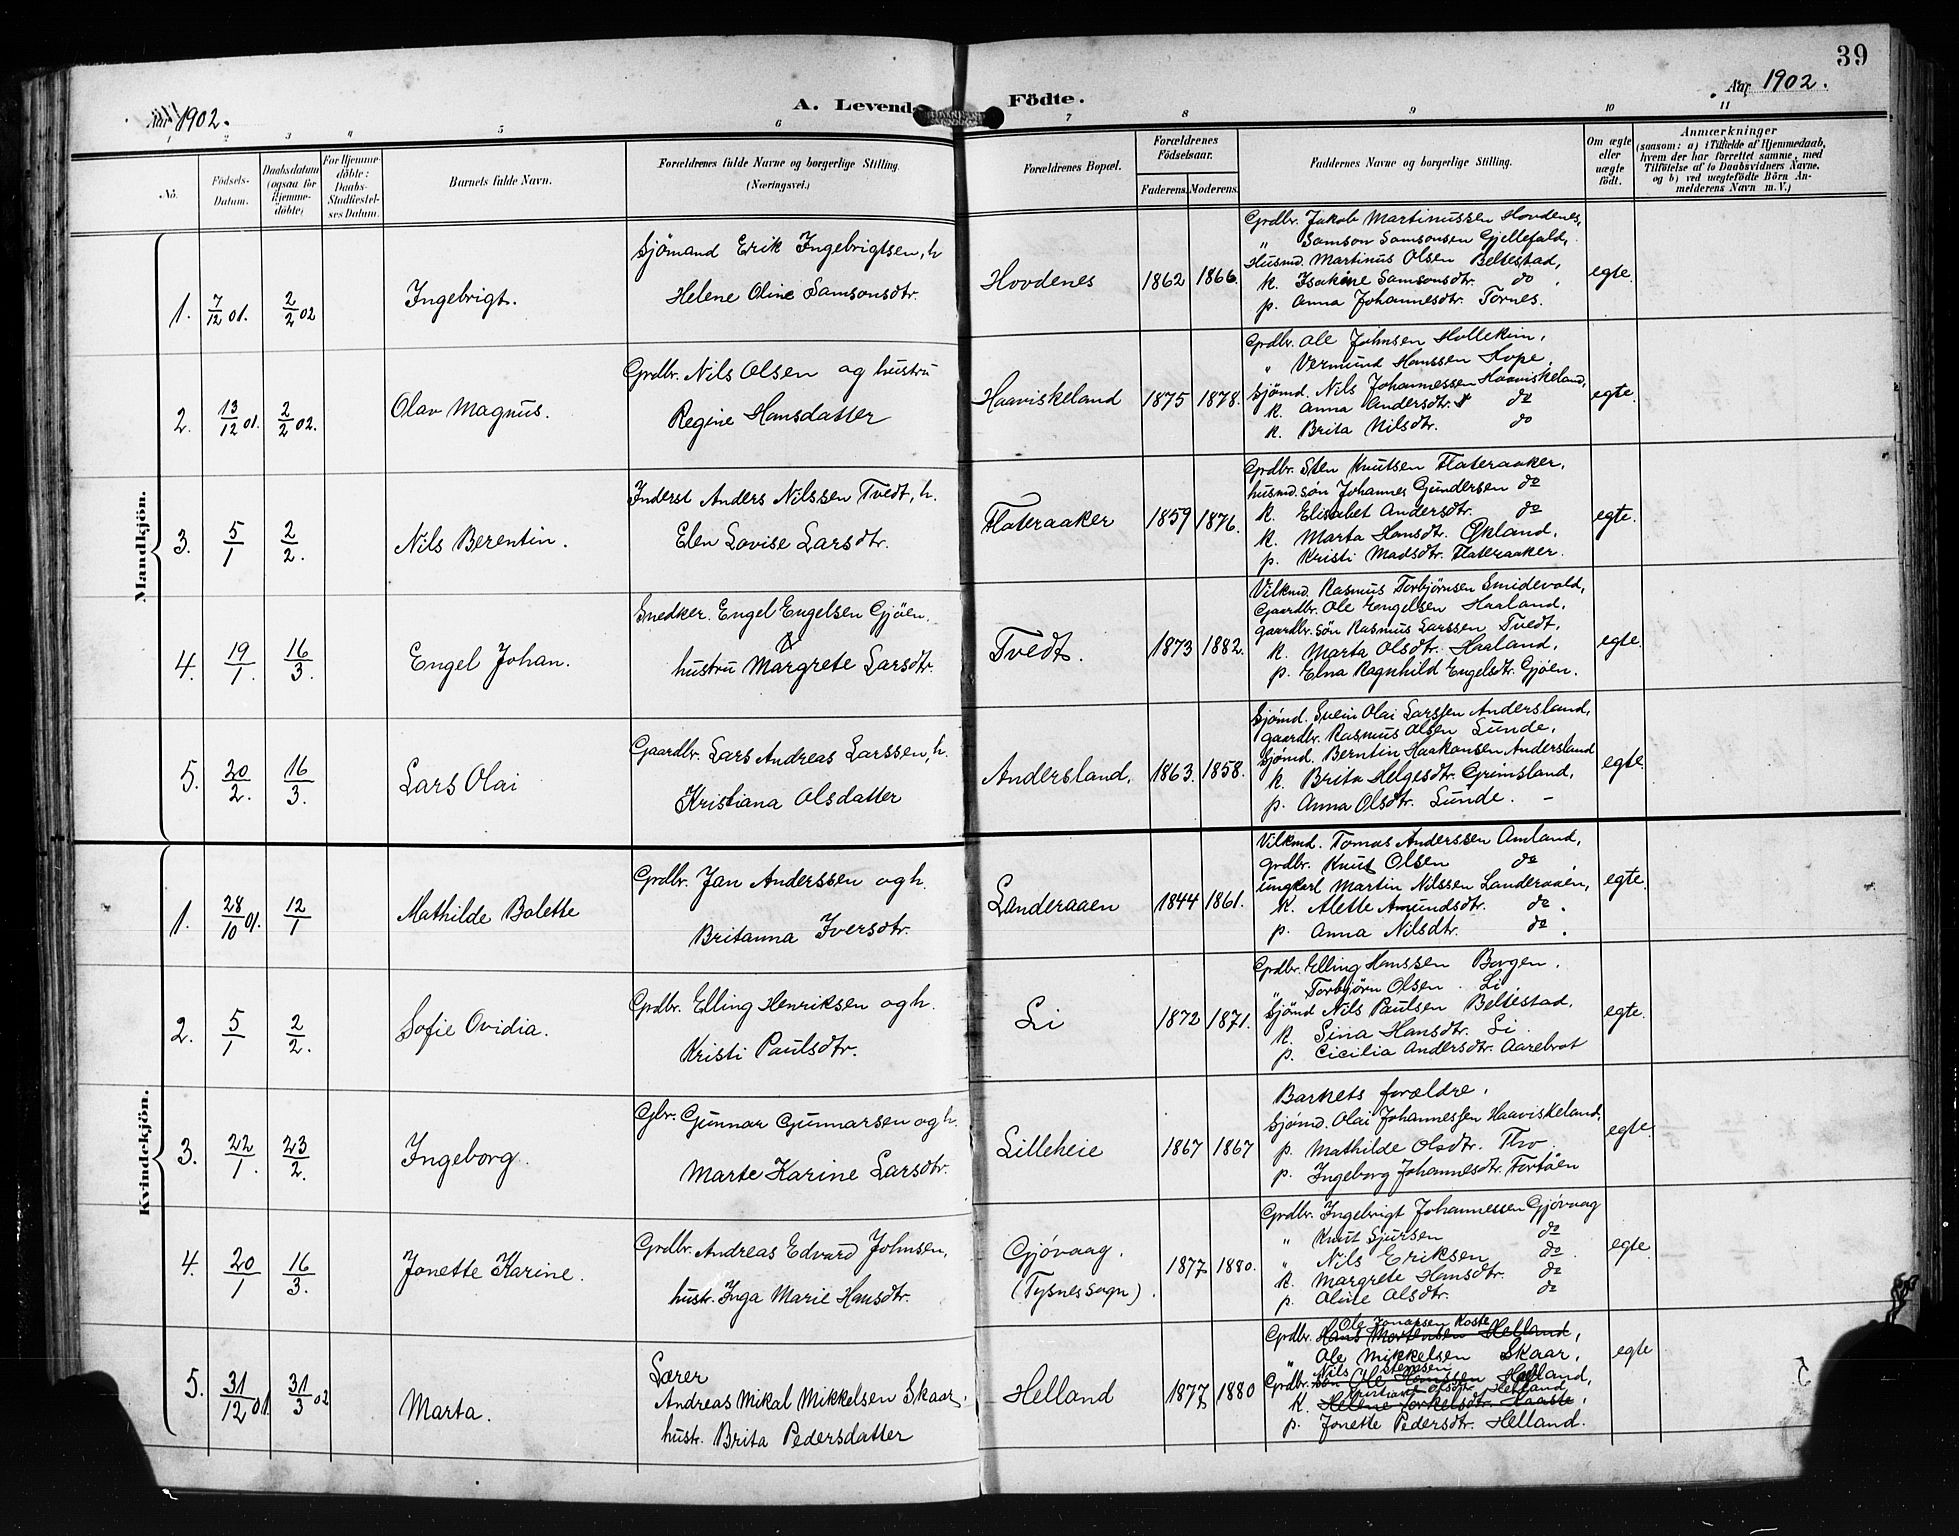 39
Aar 1902.
A. Levende Födte.
Aar 1902.
1 2 3 4 5 6 7 8 9 10 11
No.
Födsels-Datum.
Daabsdatum (ogsaa for Hjemmedöbte)
For Hjemmedöbte: Daabs-Stadfæstelses Datum.
Barnets fulde Navn.
Forældrenes fulde Navne og borgerlige Stilling. (Næringsvei.)
Forældrenes Bopæl.
Forældrenes Födselsaar.
Faderens. Moderens.
Faddernes Navne og borgerlige Stilling.
Om ægte eller uægte födt.
Anmærkninger
(saasom: a) i Tilfælde af Hjemmedaab, hvem der har forrettet samme, med Tilföielse af to Daabsvidners Navne. og b) ved uægtefödte Börn Anmelderens Navn m. V.)
Mandkjön.
1. 7/12 01. 2/2 02 Ingebrigt.
Sjömand Erik Ingebrigtsen, h
Helene Oline Samsonsdtr.
Hovdenes 1862 1866.
Grdbr. Jakob Martinussen Hovdenes,
" Samson Samsonsen Gjellefald,
Husmd. Martinus Olsen Beltestad,
k. Isakine Samsonsdtr. do
p. Anna Johannesdtr. Tornes.
egte.
2. 13/12 01. 2/2 02. Olav Magnus.
Grdbr. Nils Olsen og hustru
Regine Hansdatter
Haaviskeland 1875 1878.
Grdbr. Ole Johnsen Hollekim,
" Vermund Hanssen Hope,
Sjömd. Nils Johannessen Haaviskeland,
k. Anna Andersdtr. do
k. Brita Nilsdtr. do
egte.
3. 5/1 2/2. Nils Berentin.
Inderst Anders Nilssen Tvedt, h.
Elen Lovise Larsdtr.
Flateraaker 1859 1876.
Grdbr. Sten Knutsen Flateraaker,
husmd.søn Johannes Gundersen do
k. Elisabet Andersdtr. do
k. Marta Hansdtr. Økland,
p. Kristi Madsdtr. Flateraaker.
egte.
4. 19/1. 16/3. Engel Johan.
Snedker. Engel Engelsen Gjöen,
hustru Margrete Larsdtr.
Tvedt. 1873 1882.
Vilkmd. Rasmus Torbjörnsen Smidevold,
Gaardbr. Ole Engelsen Haaland,
gaardbr. sön Rasmus Larssen Tvedt,
k. Marta Olsdtr. Haaland,
p. Elna Ragnhild Engelsdtr. Gjöen.
egte.
5. 20/2. 16/3. Lars Olai
Gaardbr. Lars Andreas Larssen, h.
Kristiana Olsdatter
Andersland, 1863. 1858.
Sjömd. Svein Olai Larssen Andersland,
gaardbr. Rasmus Olsen Lunde,
Sjömd. Berntin Haakonsen Andersland
k. Brita Helgesdtr. Grimsland,
p. Anna Olsdtr. Lunde. –
egte.
Kvindekjön.
1. 28/10 01. 12/1 Mathilde Bolette
Grdbr. Jan Anderssen og h.
Britanna Iversdtr.
Landeraaen 1844 1861.
Vilkmd. Tomas Anderssen Amland,
grdbr. Knut Olsen do
ungkarl Martin Nilssen Landeraaen,
k. Alette Amundsdtr. do.
p. Anna Nilsdtr. do.
egte.
2. 5/1 2/2. Sofie Ovidia.
Grdbr. Elling Henriksen og h.
Kristi Paulsdtr.
Li 1872 1871.
Grdbr. Elling Hanssen Borgen,
" Torbjörn Olsen. Li,
Sjömd Nils Paulsen Beltestad.
k. Sina Hansdtr. Li.
p. Cicilia Andersdtr. Aarebrot
egte.
3. 22/1. 23/2. Ingeborg.
Gbr. Gunnar Gunnarsen og h.
Marte Karine Larsdtr.
Lilleheie 1867 1867
Barnets forældre,
Sjömd. Olai Johannessen Haaviskeland,
p. Mathilde Olsdtr. Tho
p. Ingeborg Johannesdtr. Fortöen
egte.
4. 20/1 16/3. Jonette Karine.
Grdbr. Andreas Edvard Johnsen,
hustr. Inga Marie Hansdtr.
Gjövaag. (Tysnes sogn). 1877 1880.
Grdbr. Ingebrigt Johannessen Gjövaag
" Knut Sjursen do
" Nils Eriksen do.
k. Margrete Hansdtr. do
p. Oline Olsdtr. do
egte.
5. 31/12 01. 31/3 02 Marta.
Lærer
Andreas Mikal Mikkelsen Skaar,
hustr. Brita Pedersdatter
Helland 1877 1880
Ole Jonassen Koste
Grdbr. Hans Mortensen Helland,
" Ole Mikkelsen Skaar,
Nils Stensen
Grdbr. søn Ole Hanssen Helland,
Kristiana Olsdtr. Helland
k. Helene Torkelsdtr. Haaste,
p. Jonette Pedersdtr. Helland.
egte